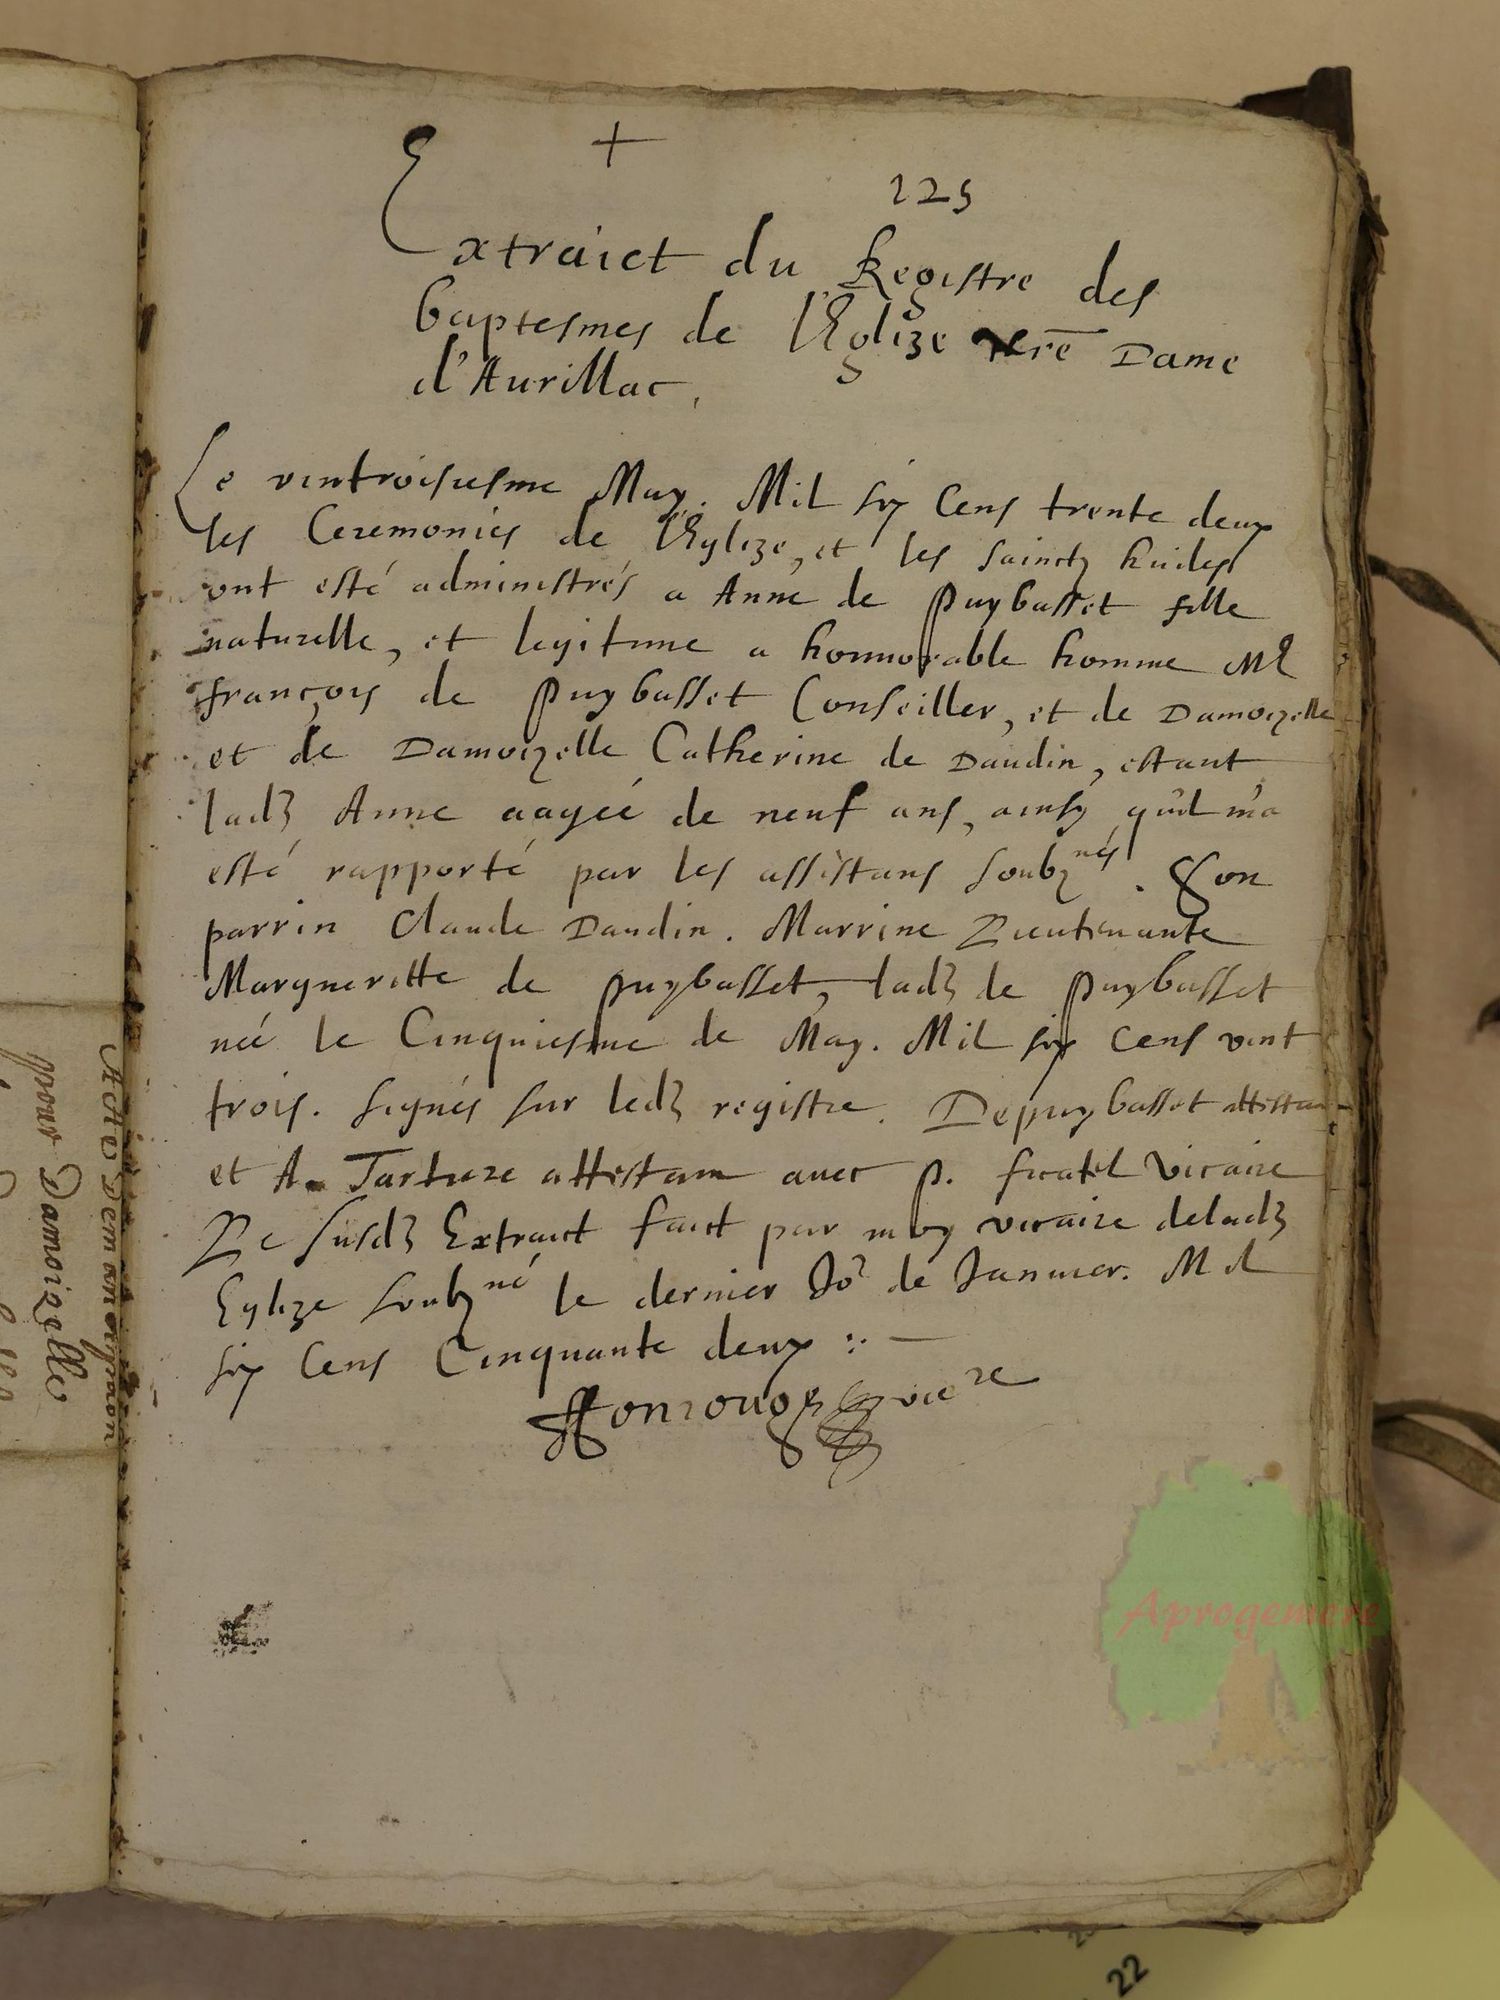 +
225
Extraict du Registre des
baptesmes de l'Eglize nre Dame
d'Aurillac,
Le vintroisiesme May. Mil six Cens trente deux
les Ceremonies de l'Eglize, et les sainctz huiles
ont esté administrés a Anne de Puybasset fille
naturelle, et legitime a honnorable homme Mr
françoys de Puybasset Conseiller, et de Damoizelle
et de Damoizelle Catherine de Daudin, estant
lad3 Anne aagéé de neuf ans, ainsy qu'il m'a
esté rapporté par les assistans soubznés. Son
parrin Claude Daudin. Marrine Lieutenante
Margueritte de puybasset, lad3 de Puybasset
néé le Cinquiesme de May. Mil six Cens vint
trois. signés sur led3 registre. Depuybasset attestan
et A. attestant avec p. vicaire
Le susd3 Extraict faict par moy vicaire delad3
Eglize soubzné le dernier Jor de Januier. Mil
six Cens Cinquante deux :: —
vicre
pour Damoizelle
Aprogemere
22